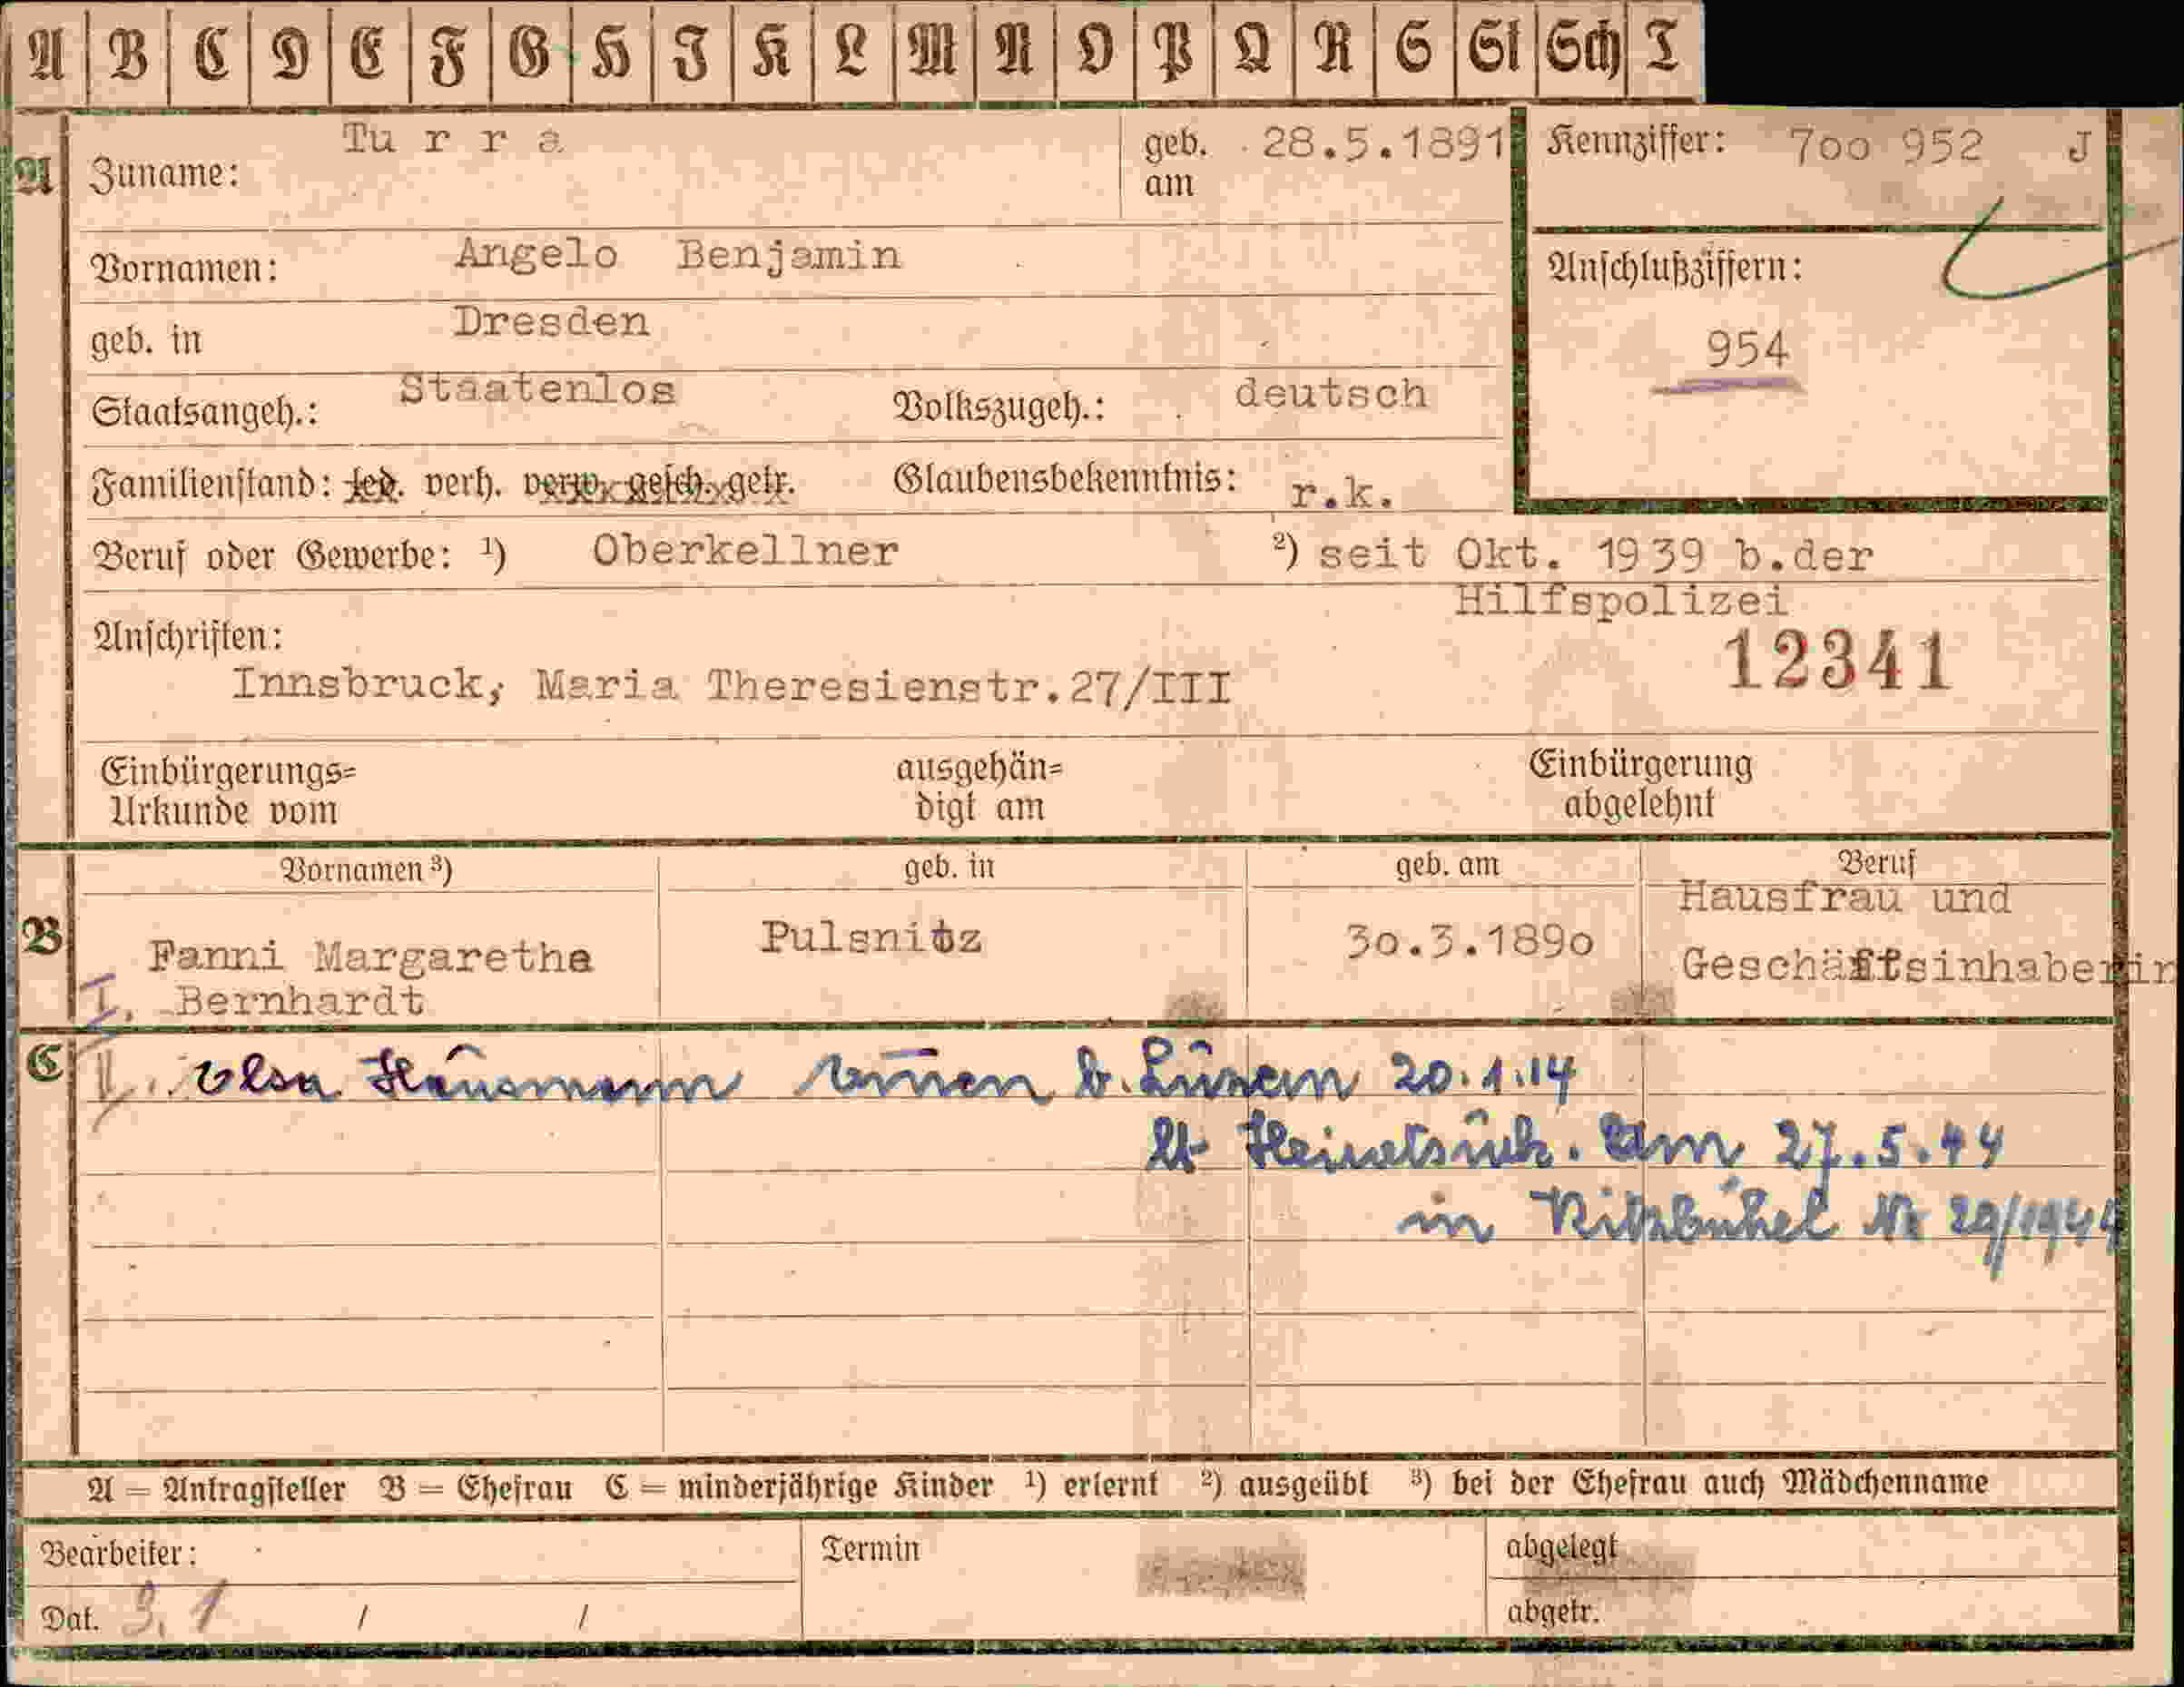 A B C D E F G H I K L M N O P Q R S St Sch T
A Zuname: Turra geb. am 28.5.1891 Kennziffer: 7oo 952 J
Vornamen: Angelo Benjamin Anschlußziffern:
geb. in Dresden 954
Staatsangeh.: Staatenlos Volkszugeh.: deutsch
Familienstand: led. verh. verw. gesch. getr. Glaubensbekenntnis: r.k.
Beruf oder Gewerbe: ¹) Oberkellner ²) seit Okt. 1939 b.der
Hilfspolizei
Anschriften: 12341
Innsbruck, Maria Theresienstr.27/III
Einbürgerungs= ausgehän= Einbürgerung
Urkunde vom digt am abgelehnt
Vornamen ³) geb. in geb. am Beruf
Hausfrau und
B Fanni Margarethe Pulsnitz 3o.3.189o Geschäftsinhaberin
I. Bernhardt
C II. Elsa Hausmann b. 20.1.14
lt Heiratsurk. am 27.5.44
in Kitzbühel Nr 29/1944
A = Antragsteller B = Ehefrau C = minderjährige Kinder ¹) erlernt ²) ausgeübt ³) bei der Ehefrau auch Mädchenname
Bearbeiter: Termin abgelegt
Dat. 3. 1 / / abgetr.